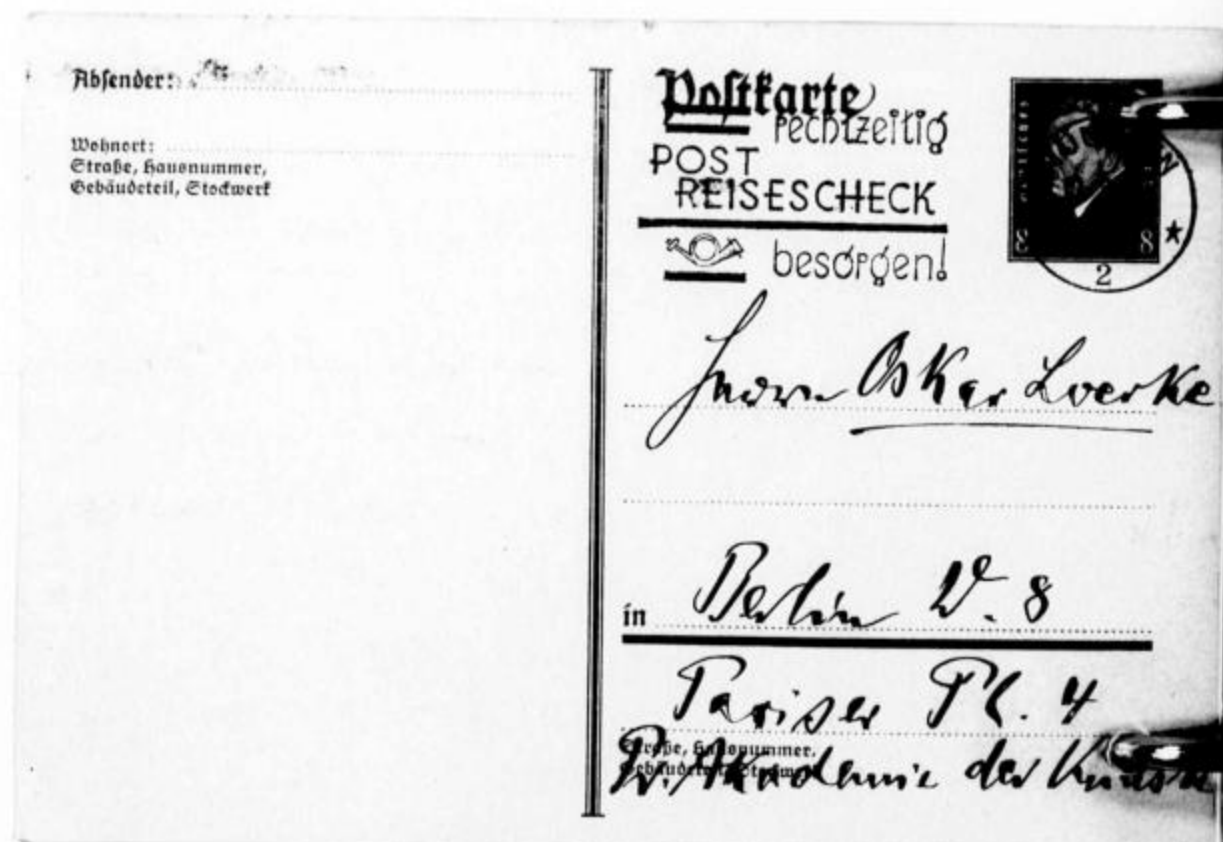 Absender:
Wohnort:
Straße, Hausnummer,
Gebäudeteil, Stockwerk
Postkarte
rechtzeitig
POST
REISESCHECK
besorgen!
8
2
Herrn Oskar Loerke
in Berlin W. 8
Pariser Pl. 4
Straße, Hausnummer,
Gebäudeteil, Stockwerk
Pr. Akademie der Künste